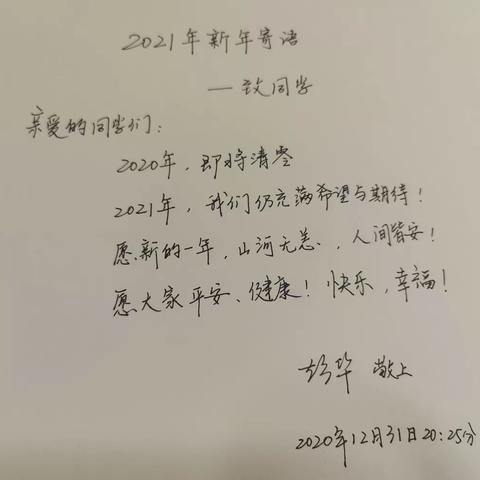 2021年新年寄语
—致同学
亲爱的同学们：
2020年，即将清零
2021年，我们仍充满希望与期待！
愿新的一年，山河无恙，人间皆安！
愿大家平安、健康！快乐，幸福！
华 敬上
2020年12月31日20:25分